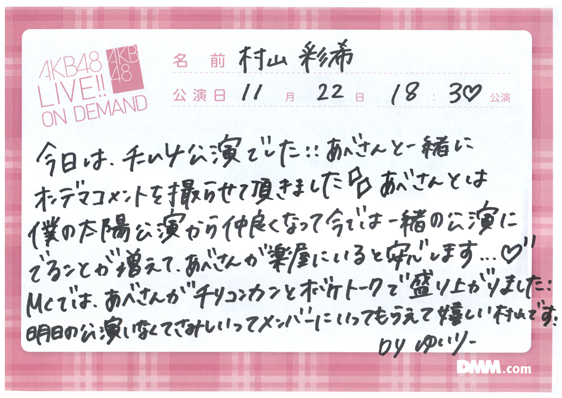 AKB48
LIVE!!
ON DEMAND
AKB
48
名前 村山 彩希
公演日 11月 22日 18:30公演
今日は、チーム4公演でした!! あべさんと一緒に
オンデマコメントを撮らせて頂きました あべさんとは
僕の太陽公演から仲良くなって今では一緒の公演に
でることが増えて、あべさんが楽屋にいると安心します…♡
MCでは、あべさんがチリコンカンとボケトークで盛り上がりました:
明日の公演いなくてさみしいってメンバーにいってもらえて嬉しい村山です:
by ゆいりー
DMM.com